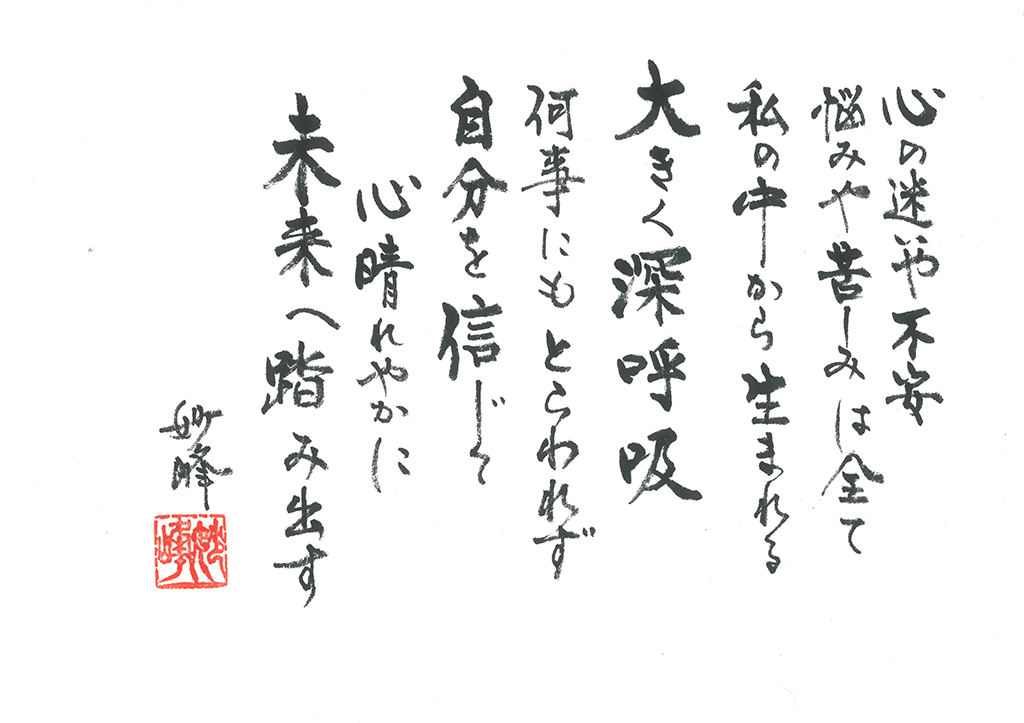 心の迷いや不安
悩みや苦しみは全て
私の中から生まれる
大きく深呼吸
何事にもとらわれず
自分を信じて
心晴れやかに
未来へ踏み出す
妙峰